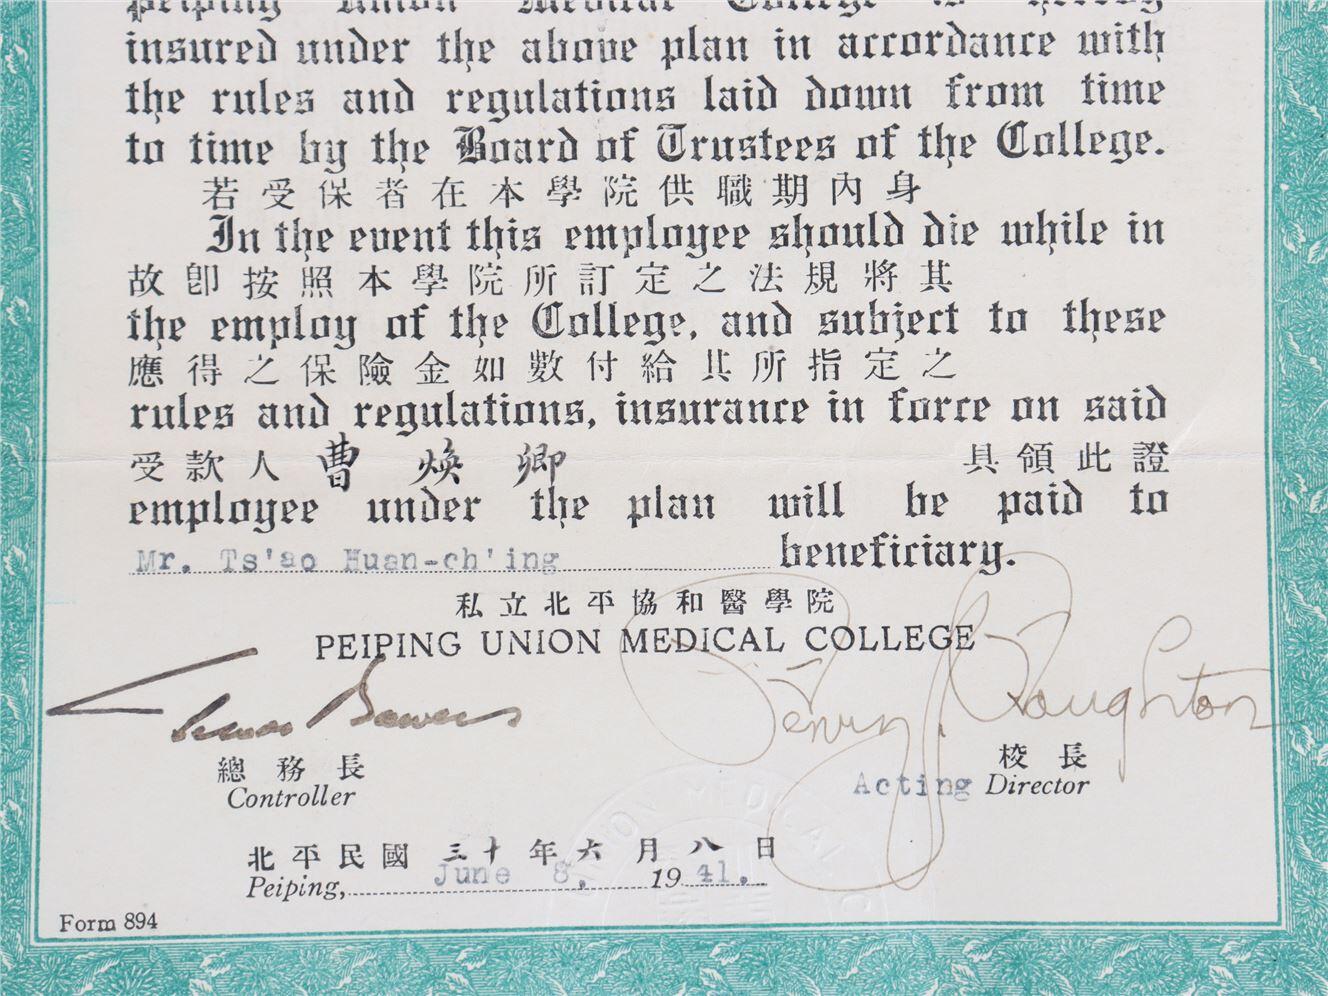 Peiping Union Medical College is hereby
insured under the above plan in accordance with
the rules and regulations laid down from time
to time by the Board of Trustees of the College.
若受保者在本學院供職期內身
In the event this employee should die while in
故卽按照本學院所訂定之法規將其
the employ of the College, and subject to these
應得之保險金如數付給其所指定之
rules and regulations, insurance in force on said
受款人 曹煥卿 具領此證
employee under the plan will be paid to
Mr. Ts'ao Huan-ch'ing beneficiary.
私立北平協和醫學院
PEIPING UNION MEDICAL COLLEGE
Bowen Henry S. Houghton
總務長 校長
Controller Acting Director
北平民國三十年六月八日
Peiping, June 8, 1941.
Form 894